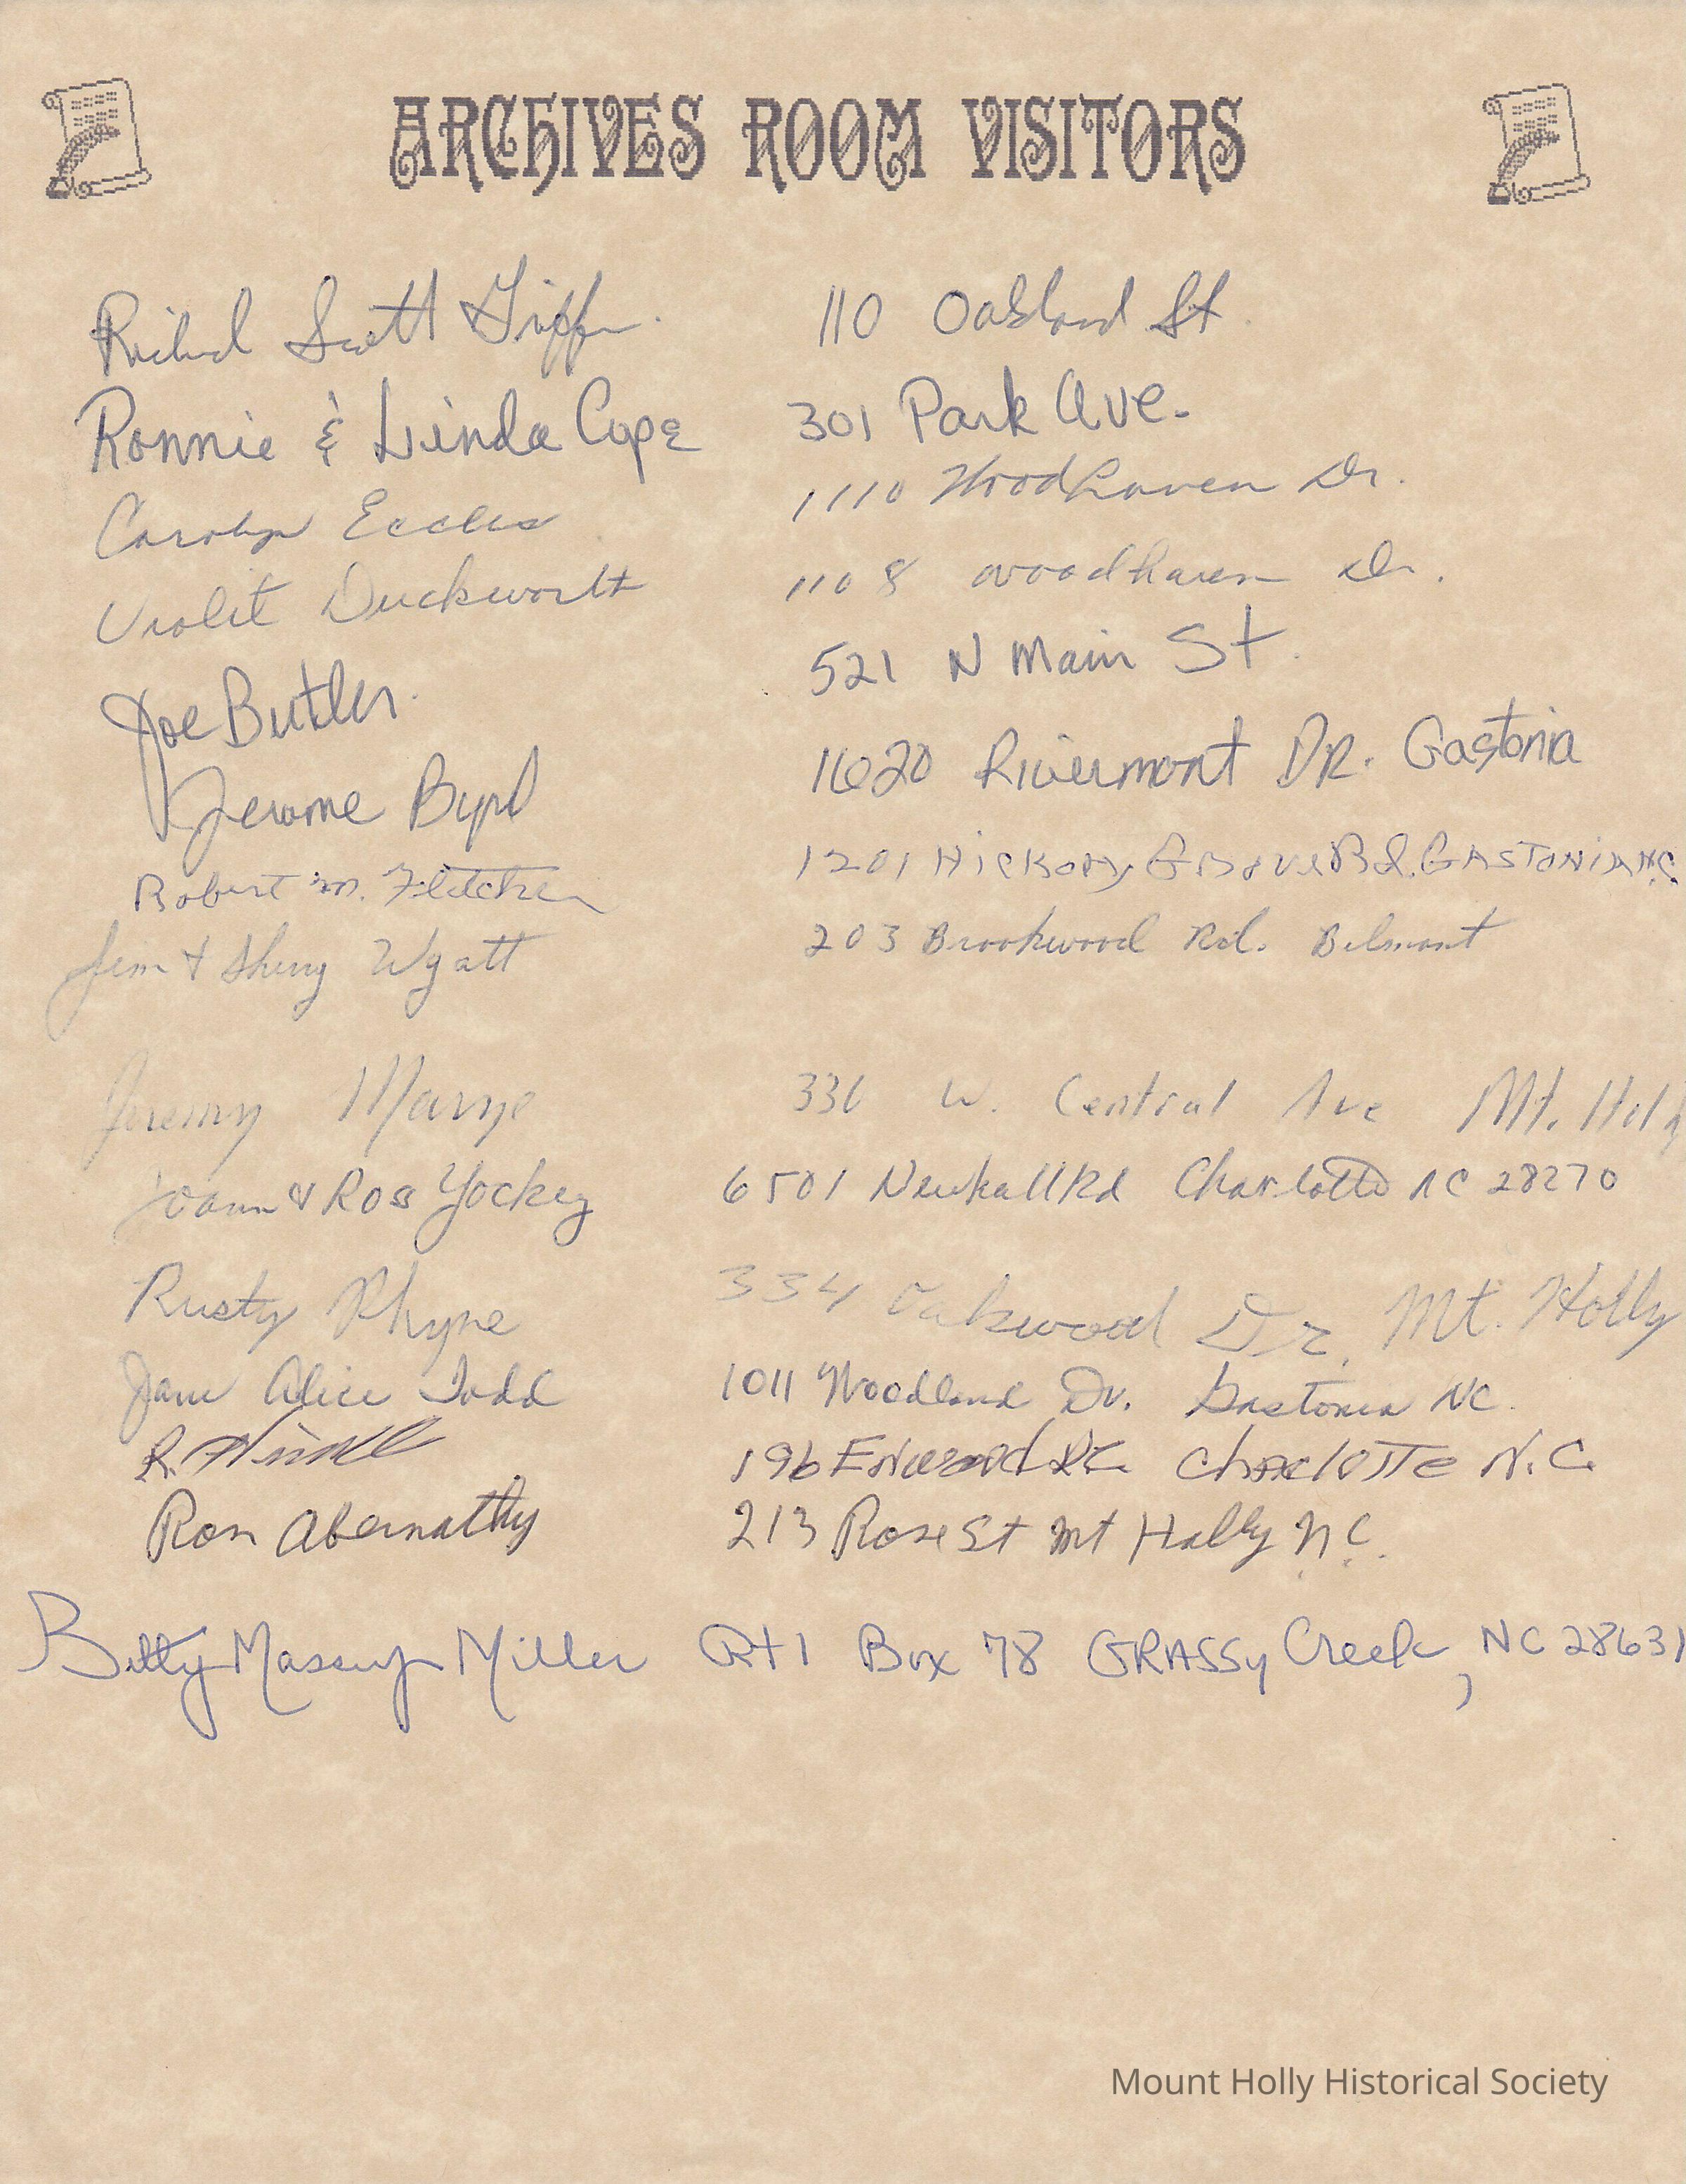 ARCHIVES ROOM VISITORS
Richard Scott Griffin 110 Oakland St
Ronnie & Linda Cope 301 Park Ave.
Carolyn Eccles 1110 Woodhaven Dr.
Violet Duckworth 1108 woodhaven Dr.
Joe Butler. 521 N Main St.
Jerome Byrd 1620 Rivermont DR. Gastonia
Robert M. Fletcher 1201 Hickory Grove Rd. GASTONIA NC
Jim & Sherry Wyatt 203 Brookwood Rd. Belmont
Jeremy 336 W. Central Ave Mt. Holly
Joann & Ross Yockey 6501 Newhall Rd Charlotte NC 28270
Rusty Rhyne 334 Oakwood Dr. Mt. Holly
Jane Alice Todd 1011 Woodland Dr. Gastonia NC.
R. 196 Charlotte N.C.
Ron Abernathy 213 Rose St Mt Holly N.C.
Betty Massey Miller Rt 1 Box 78 GRASSy Creek, NC 28631
Mount Holly Historical Society